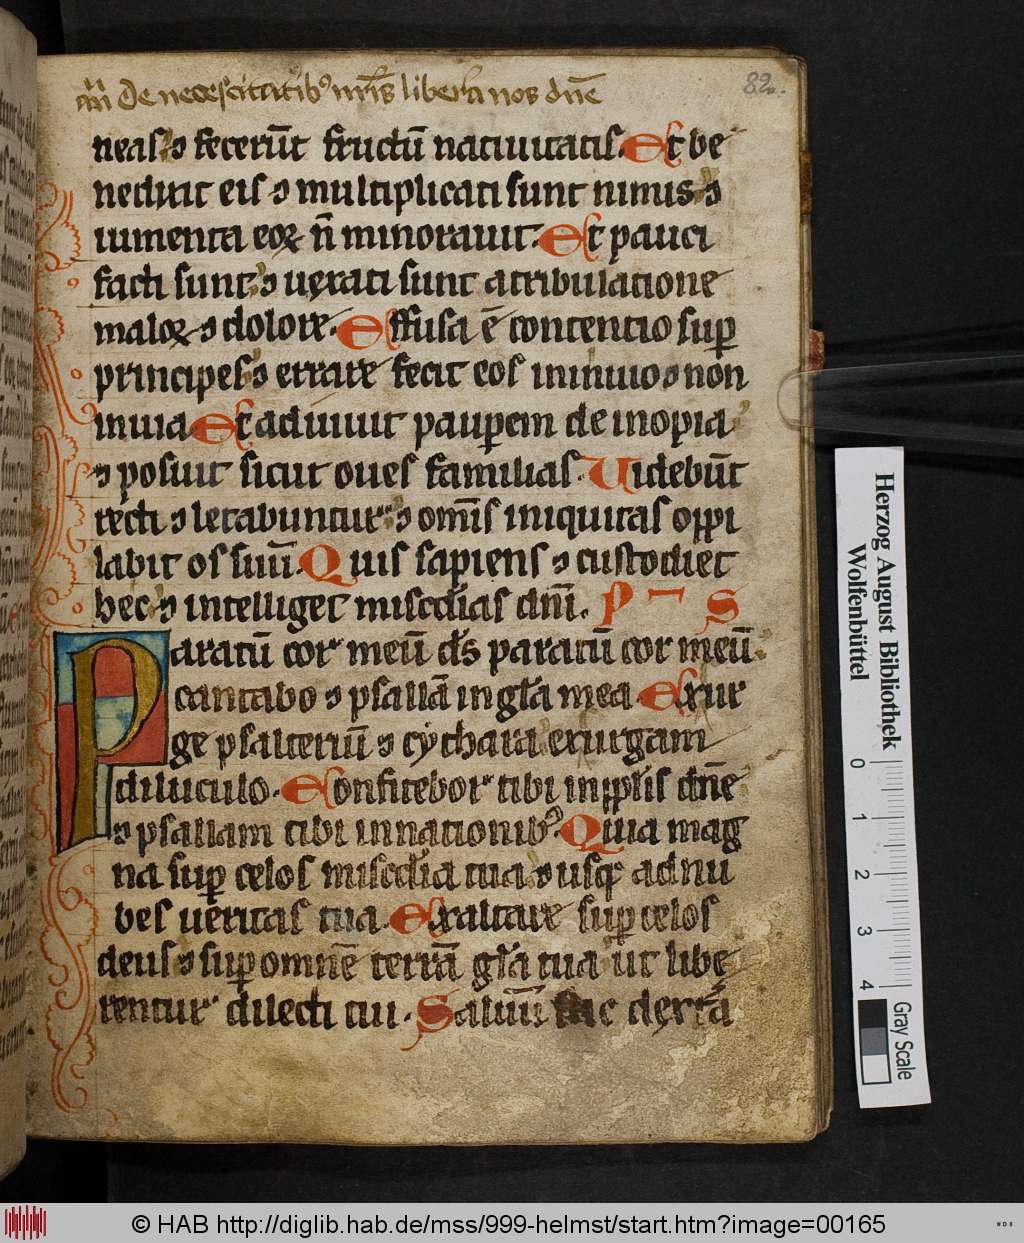 an̄ De necescitatibꝰ nr̄is libera nos dn̄e
82.
neas ⁊ fecerūt fructū natiuitatis. Et be
nedixit eis ⁊ multiplicati sunt nimis ⁊
iumenta eoꝝ n̄ minorauit. Et pauci
facti sunt ⁊ uexati sunt atribulatione
maloꝝ ⁊ dolore. Effusa ē contentio suꝑ
principes ⁊ errare fecit eos ininuio ⁊ non
inuia Et adiuuit pauꝑem de inopia
⁊ posuit sicut oues familias. Uidebūt
recti ⁊ letabuntur ⁊ om̄is iniquitas oppi
labit os suū. Quis sapiens ⁊ custodiet
hec ⁊ intelliget misc̄dias dn̄i. P S
Paratū cor meū ds̄ paratū cor meū
cantabo ⁊ psallā in gl̄a mea Exur
ge psalteriū ⁊ cythara exurgam
diluculo. Confitebor tibi in ppl̄is dn̄e
⁊ psallam tibi innationibꝰ Quia mag
na suꝑ celos misc̄dia tua ⁊ usqꝫ ad nu
bes ueritas tua. Exaltare suꝑ celos
deus ⁊ suꝑ omnē terrā gl̄a tua ut libe
rentur dilecti tui. Saluū fac dextā
Herzog August Bibliothek
Wolfenbüttel
0 1 2 3 4
Gray Scale
© HAB http://diglib.hab.de/mss/999-helmst/start.htm?image=00165